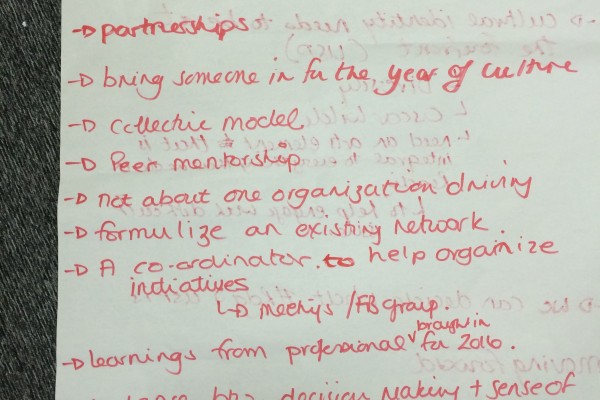 → partnerships
→ bring someone in for the year of culture
→ collective model
→ Peer mentorship
→ not about one organization driving
→ formulize an existing network.
→ A co-ordinator to help orgainize
indiatives
↳ meetings / FB group.
→ learnings from professional brought in
for 2016.
decision making + sense of